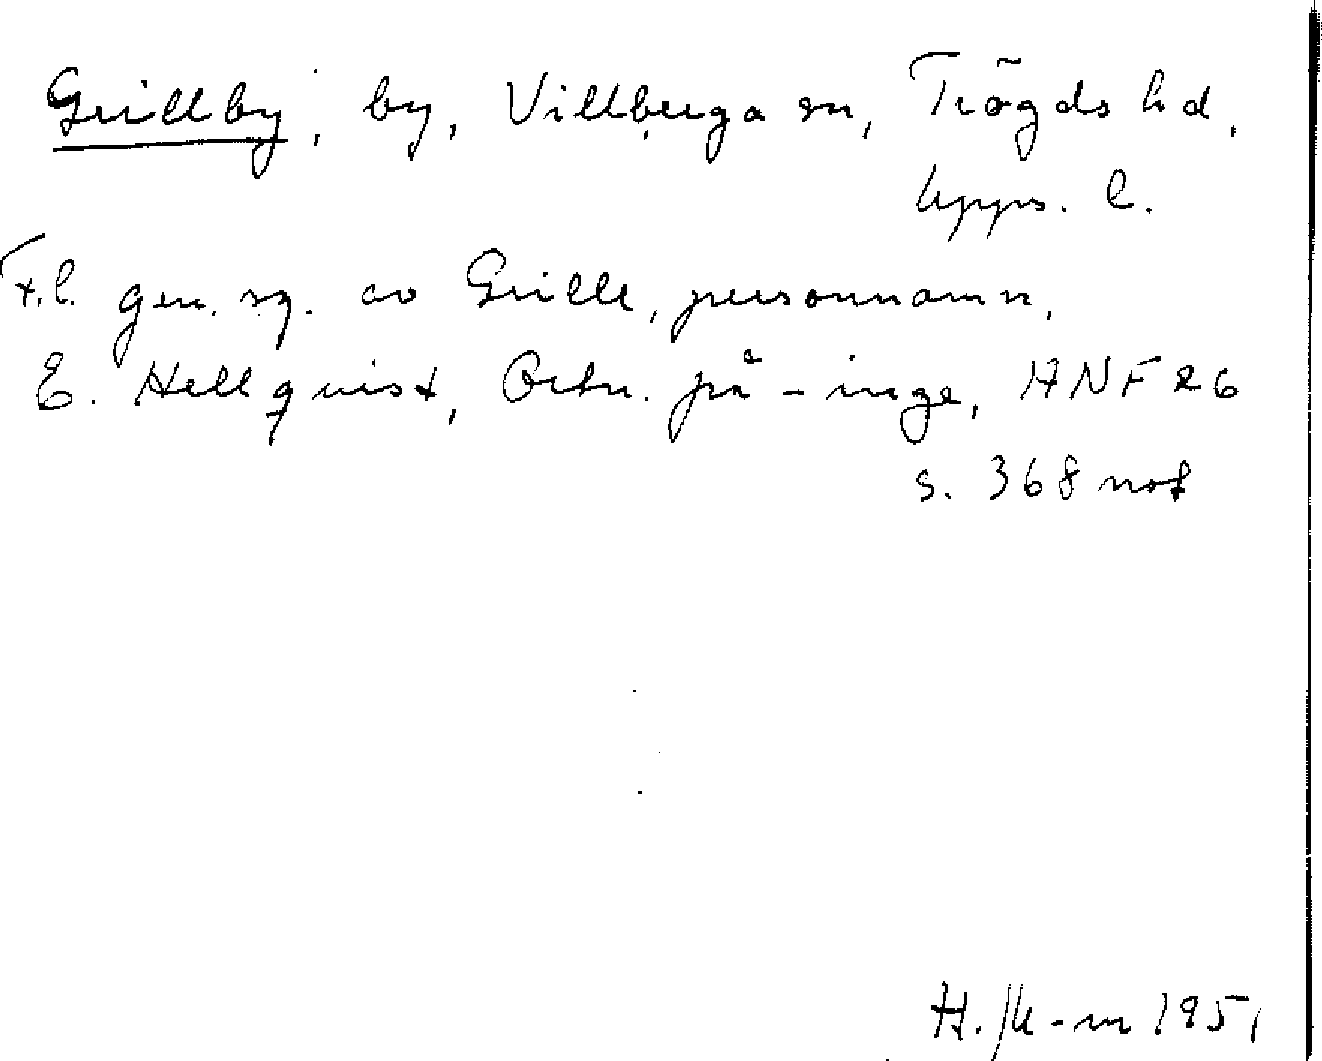 Grillby, by, Villberga sn, Trögds hd,
Upps. l.
F.l. gen. sg. av Grille, personnamn,
E. Hellquist, Ortn. på -inge, ANF 26
s. 368 not
1951